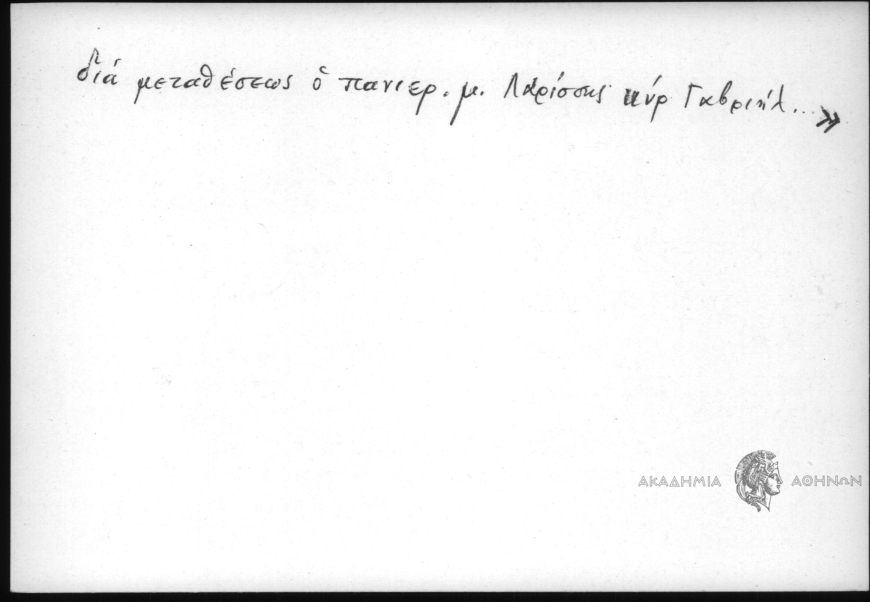 διά μεταθέσεως ὁ πανιερ. μ. Λαρίσσης κύρ Γαβριήλ...»
ΑΚΑΔΗΜΙΑ ΑΘΗΝΩΝ